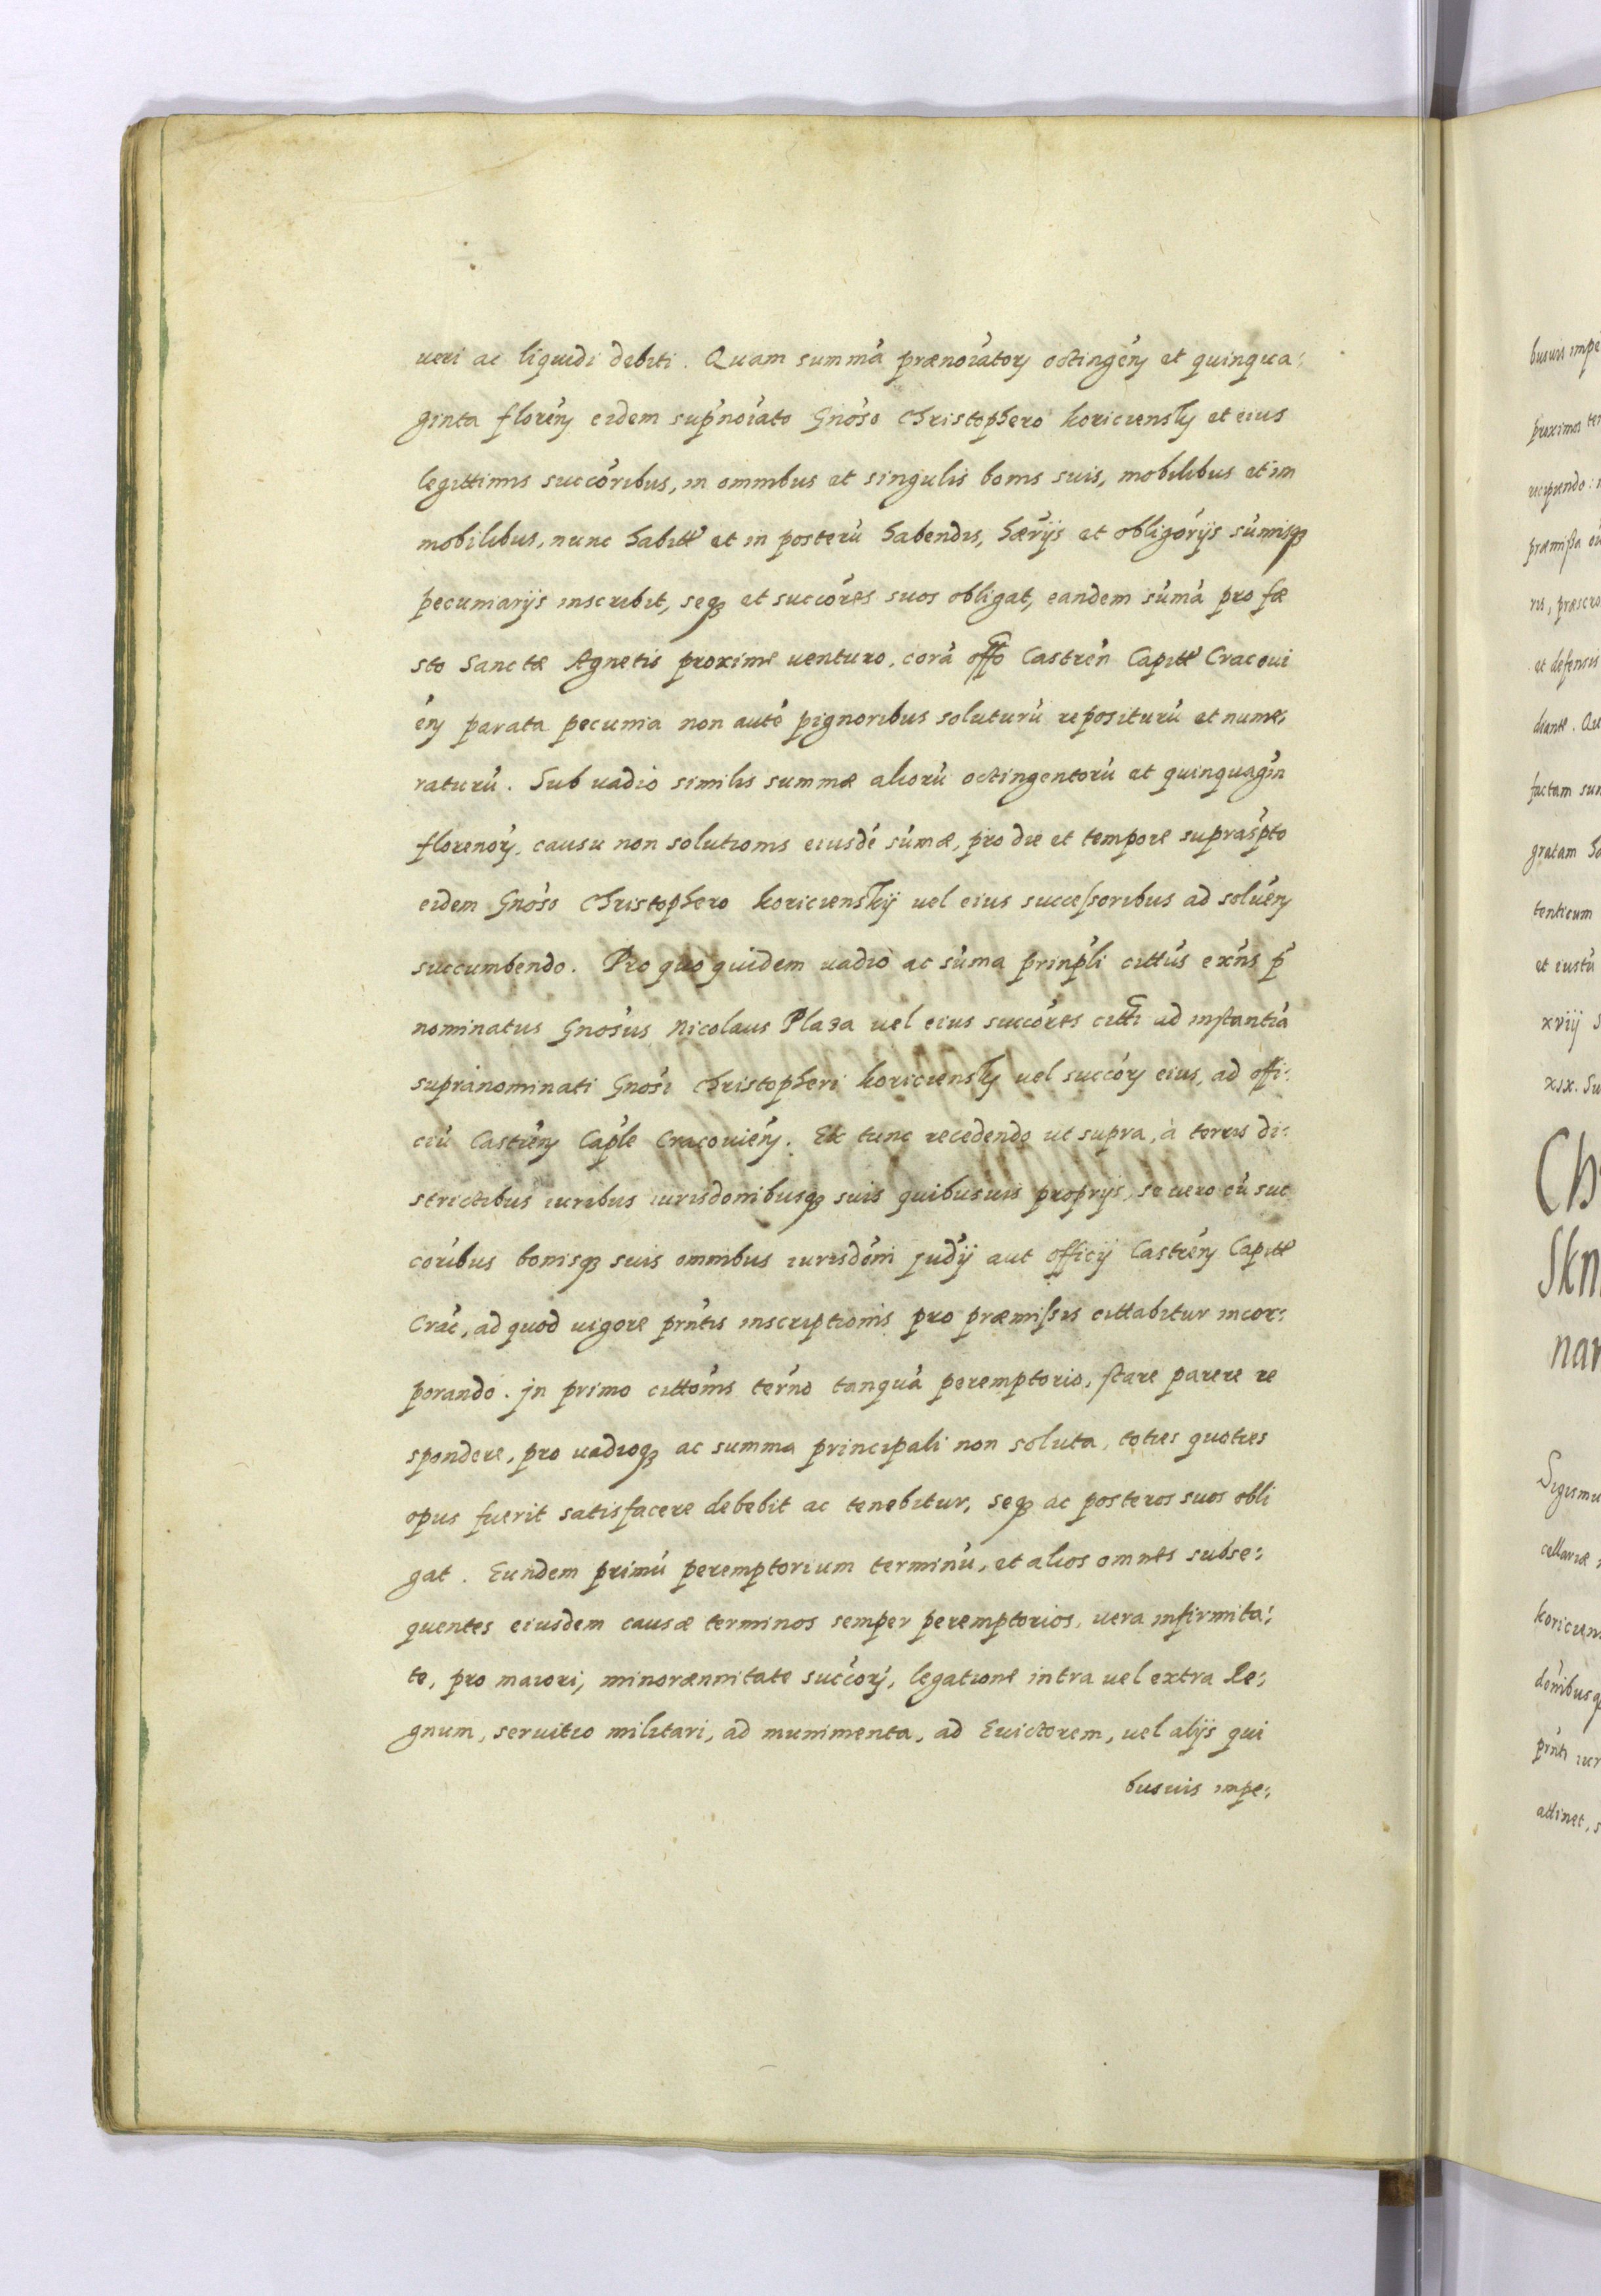 ueri ac liquidi debiti. Quam summā prænoīatorꝝ octingēꝝ et quinqua:
ginta florēꝝ eidem sup̄noīato Gnōso Christophero koricienskÿ et eius
legittimis succōribus, in omnibus et singulis bonis suis, mobilibus et im
mobilibus, nunc habitꝭ et in posterū habendis, hær̄ijs et obligōrijs sūmisqꝫ
pecuniarijs inscribit, seqꝫ et succōres suos obligat, eandem sūmā pro fæ
sto Sanctæ Agnetis proxime venturo, corā offo Castren̄ Capitꝭ Cracoui
ēn parata pecunia non autē pignoribus soluturū repositurū et nume:
raturū. Sub uadio similis summæ aliorū octingentorū et quinquagin̄
florenorꝝ, causa non solutionis eiusdē sūmæ, pro die et tempore supras̄pto
eidem Gnōso Christophero koricienskij uel eius successoribus ad soluēn
succumbendo. Pro quo quidem uadio ac sūma prinp̄li cittūs exn̄s p̄
nominatus Gnōsus Nicolaus Plaza uel eius succōres citti ad instantiā
supranominati Gnōsi Christopheri koricienskÿ uel succōrꝝ eius, ad offi:
ciū Castrēn Cap̄le Cracouiēn. Ex tunc recedendo ut supra, à terris di:
strictibus iuribus iurisdonibusqꝫ suis quibusuis proprijs, se uero cū suc
cōribus bonisqꝫ suis omnibus iurisdōni judij aut officij Castrēn Capitꝭ
Crac̄, ad quod uigore prn̄tis inscriptionis pro præmissis cittabitur incor:
porando. jn primo cittōnis tern̄o tanquā peremptorio, stare parere re
spondere, pro uadioqꝫ ac summa principali non soluta, toties quoties
opus fuerit satisfacere debebit ac tenebitur, seqꝫ ac posteros suos obli
gat. Eundem primū peremptorium terminū, et alios omnes subse:
quentes eiusdem causæ terminos semper peremptorios, uera infirmita:
te, pro maiori, minorænnitate succōrꝝ, legatione intra uel extra Re:
gnum, seruitio militari, ad munimenta, ad Euictorem, uel alijs qui
busuis impe: